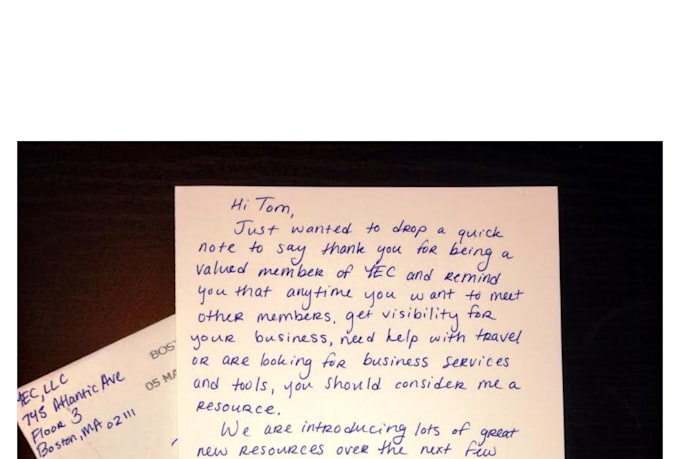 Hi Tom,
Just wanted to drop a quick
note to say thank you for being a
valued member of YEC and remind
you that anytime you want to meet
other members, get visibility for
your business, need help with travel
or are looking for business services
and tools, you should consider me a
resource.
We are introducing lots of great
new resources over the next few
YEC, LLC
745 Atlantic Ave
Floor 3
Boston, MA 02111
BOS
05 MA